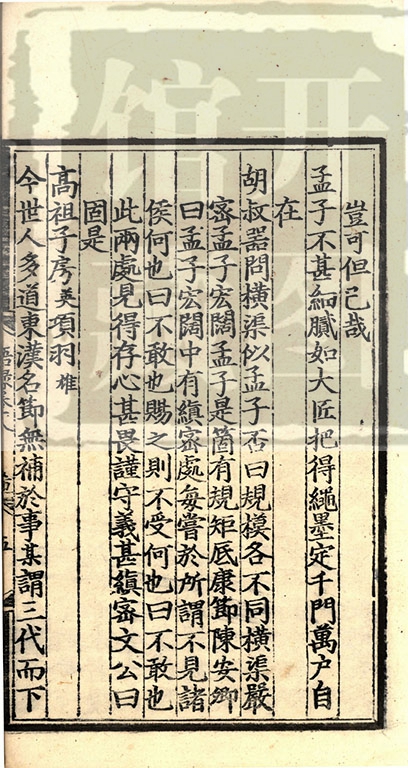 豈可但已哉
孟子不甚細膩如大匠把得繩墨定千門萬户自
在
胡叔器問横渠似孟子否曰規模各不同横渠嚴
宻孟子宏闊孟子是箇有規矩底康節陳安卿
曰孟子宏闊中有縝宻處每嘗於所謂不見諸
侯何也曰不敢也賜之則不受何也曰不敢也
此兩處見得存心甚畏謹守義甚縝宻文公曰
固是
髙祖子房英項羽雄
今世人多道東漢名節無補於事某謂三代而下